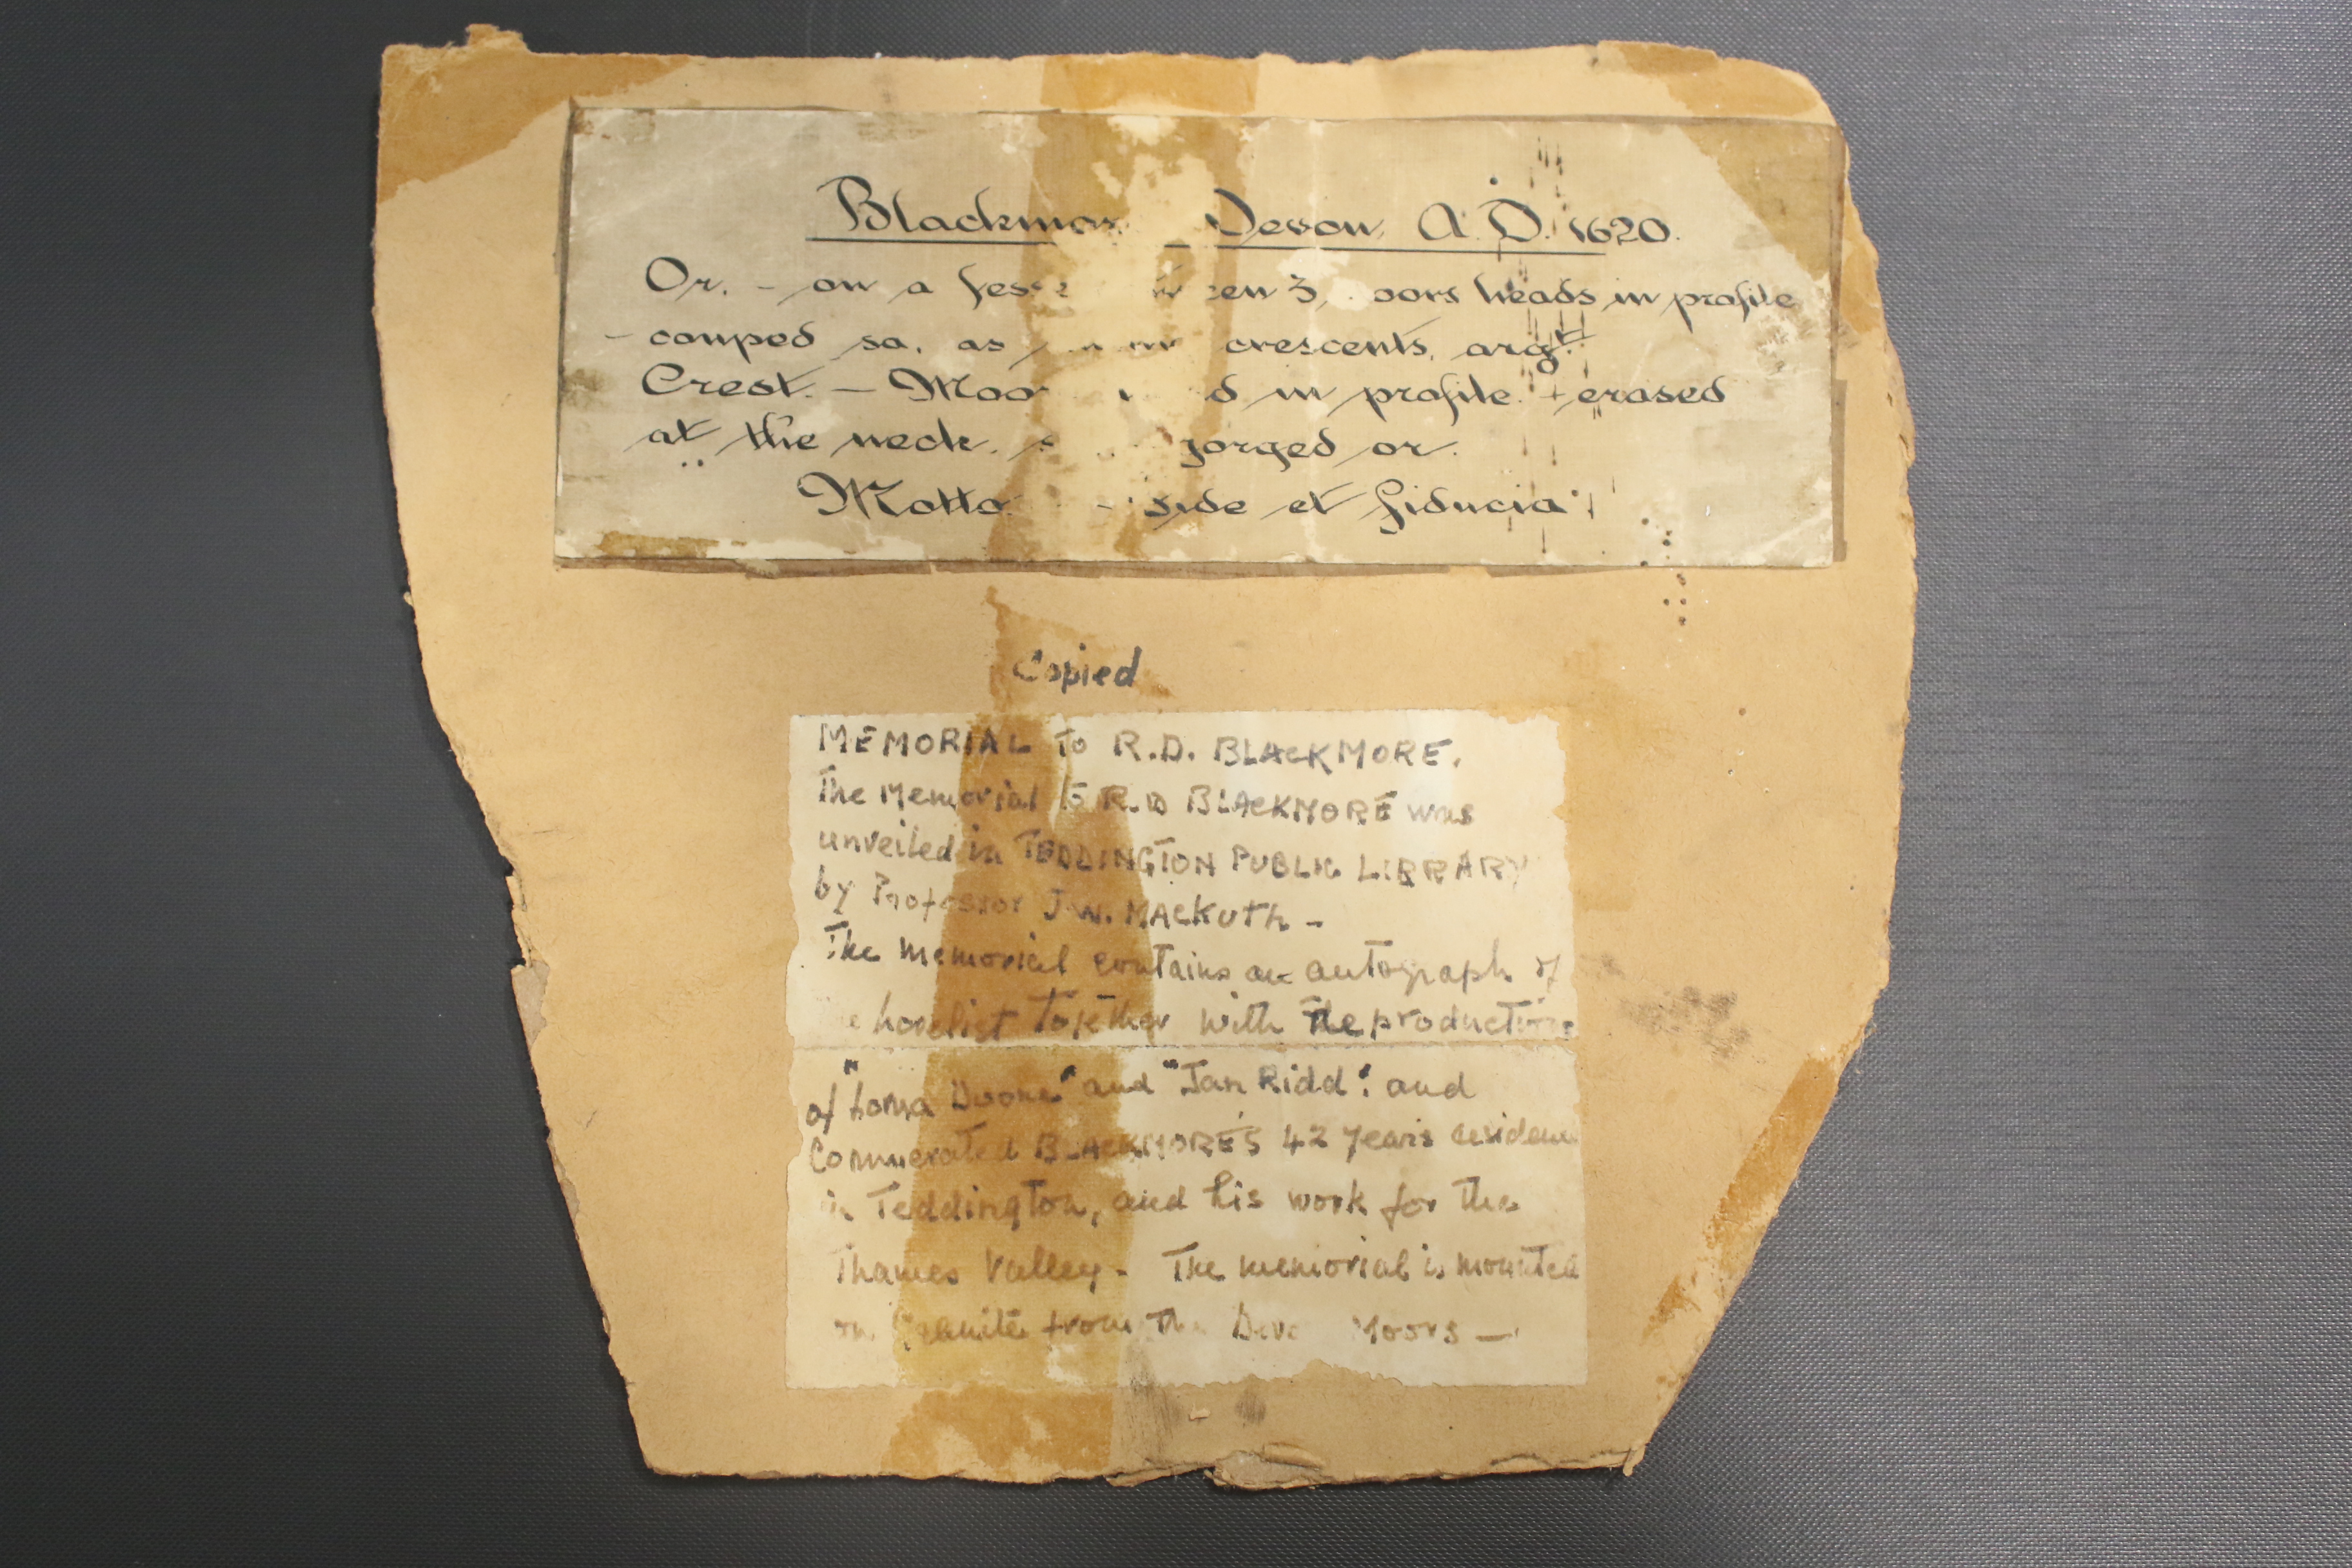 Blackmor Devon, A.D. 1620.
Or. - on a fess 3 oors heads in profile
- couped sa. as crescents, argt.
Crest. - Moor in profile. erased
at the neck. gorged or.
Motto - side et fiducia
Copied
MEMORIAL To R.D. BLACKMORE.
The Memorial to R.D BLACKMORE was
unveiled in TEDDINGTON PUBLIC LIBRARY
by Professor J.W. MACKUTH -
The memorial contains an autograph of
novelist Together with The productions
of "Lorna Doone" and "Jan Ridd". and
BLACKMORE'S 42 years residence
in Teddington, and his work for the
Thames Valley - The memorial is mounted
on from The Moors -